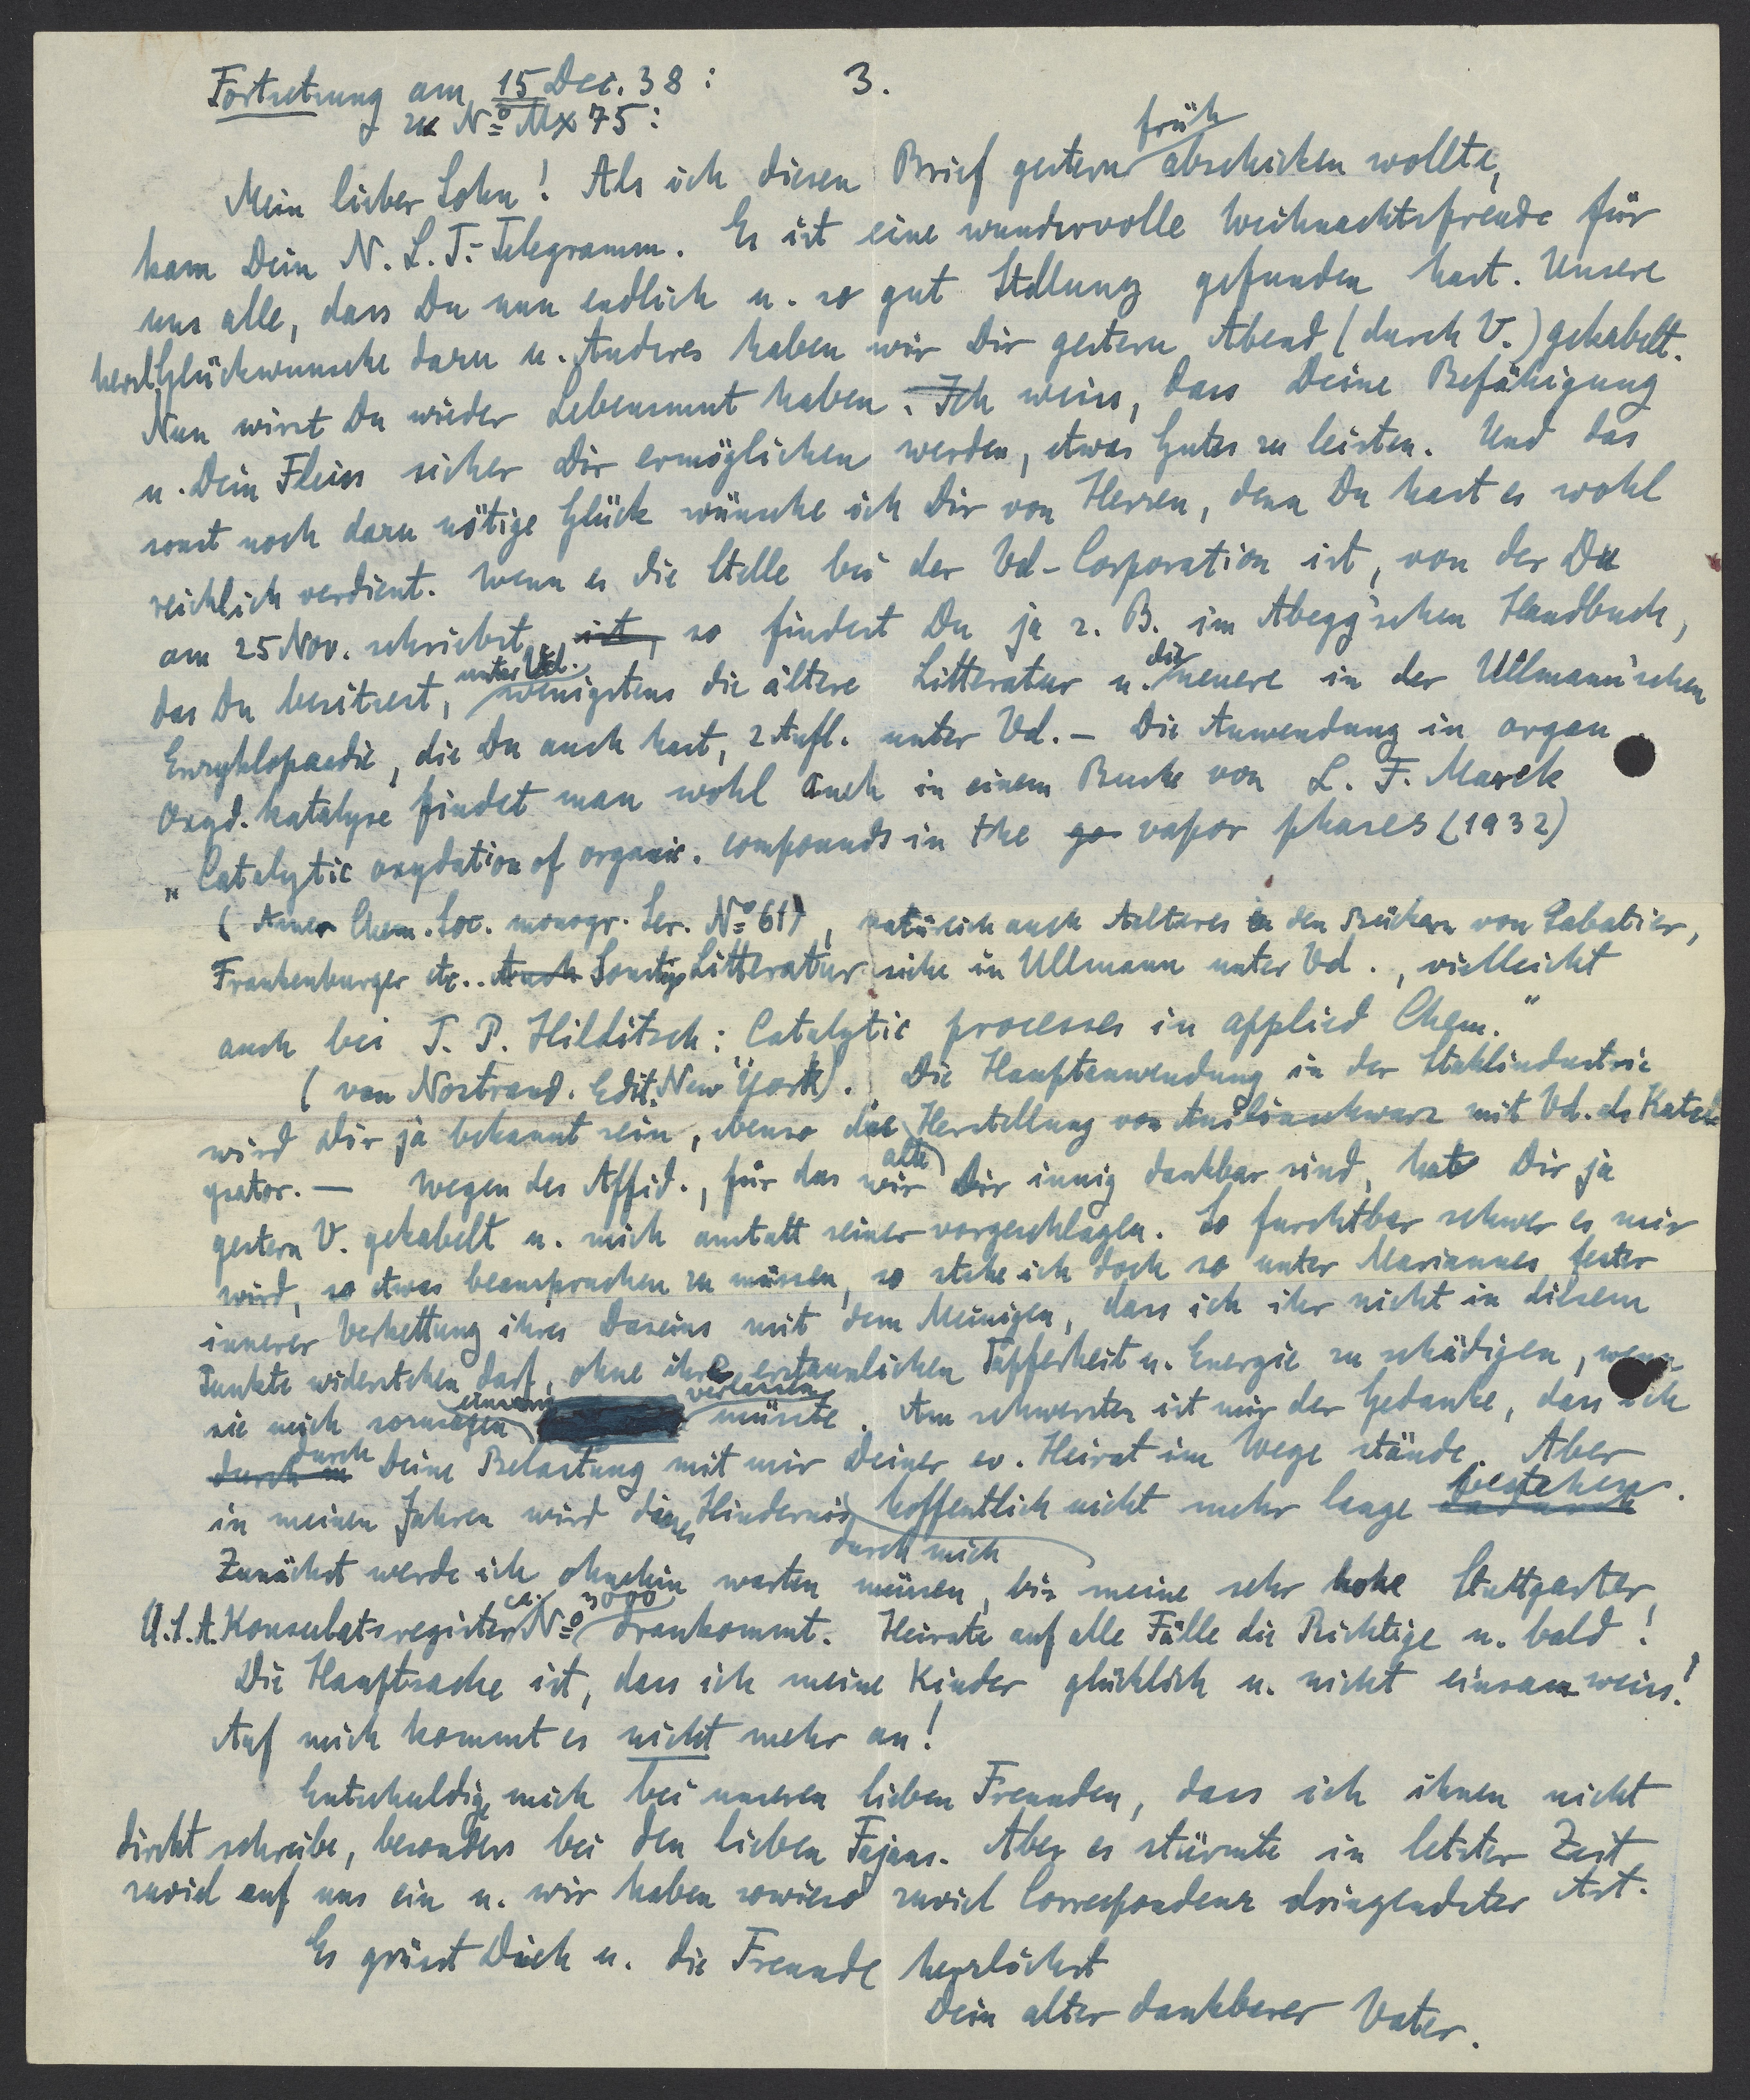 Fortsetzung am 15 Dec. 38:
3.
zu No Mx 75:
Mein lieber Sohn! Als ich diesen Brief gestern früh abschicken wollte,
kam Dein N. L. T.-Telegramm. Es ist eine wundervolle Weihnachtsfreude für
uns alle, dass Du nun endlich u. so gut Stellung gefunden hast. Unsere
herzl. Glückwunsche dazu u. Anderes haben wir Dir gestern Abend (durch V.) gekabelt.
Nun wirst Du wieder Lebensmut haben. Ich weiss, dass Deine Befähigung
u. Dein Fleiss sicher Dir ermöglichen werden, etwas Gutes zu leisten. Und das
sonst noch dazu nötige Glück wünsche ich Dir von Herzen, denn Du hast es wohl
reichlich verdient. Wenn es die Stelle bei der Vd-Corporation ist, von der Du
am 25 Nov. schriebst, ist, so findest Du ja z. B. im Abegg'schen Handbuch,
das Du besitzest, unter Vd. wenigstens die ältere Litteratur u. die neuere in der Ullmann'schen
Enzyklopaedie, die Du auch hast, 2 Aufl. unter Vd. – Die Anwendung in organ
Oxyd. katalyse findet man wohl auch in einem Buche von L. F. Marek
„Catalytic oxydation of organic. compounds in the ga vapor phases (1932)
(Amer Chem. Soc. monogr. Ser. No 61), natürlich auch Aelteres in den Büchern von Sabatier,
Frankenburger etc.. Auch Sonstige Litteratur siehe in Ullmann unter Vd., vielleicht
auch bei T. P. Hilditsch: Catalytic processes in applied Chem."
(van Nostrand. Edit. New York). Die Hauptanwendung in der Stahlindustrie
wird Dir ja bekannt sein, ebenso die Herstellung von Anilinschwarz mit Vd. als Kataly
gator. – Wegen des Affid., für das wir alle Dir innig dankbar sind, hat Dir ja
gestern V. gekabelt u. mich anstatt seiner vorgeschlagen. So furchtbar schwer es mir
wird, so etwas beanspruchen zu müssen, so stehe ich doch so unter Mariannes fester
innerer Verkettung ihres Daseins mit dem Meinigen, dass ich ihr nicht in diesem
Punkte widerstehen darf, ohne ihre erstaunlichen Tapferkeit u. Energie zu schädigen, wenn
sie mich sozusagen einsam verlassen müsste. Am schwersten ist mir der Gedanke, dass ich
durch m durch Deine Belastung mit mir Deiner ev. Heirat im Wege stände. Aber
in meinen Jahren wird dieses Hindernis durch mich hoffentlich nicht mehr lange bestehen.
Zunächst werde ich ohnehin warten müssen, bis meine sehr hohe Stuttgarter
U.S.A. Konsulatsregister No ca. 3000 drankommt. Heirate auf alle Fälle die Richtige u. bald!
Die Hauptsache ist, dass ich meine Kinder glücklich u. nicht einsam weiss!
Auf mich kommt es nicht mehr an!
Entschuldige mich bei unseren lieben Freunden, dass ich ihnen nicht
direkt schreibe, besonders bei den lieben Fajans. Aber es stürmte in letzter Zeit
zuviel auf uns ein u. wir haben sowieso zuviel Correspondenz dringendster Art.
Es grüsst Dich u. die Freunde herzlichst
Dein alter dankbarer Vater.